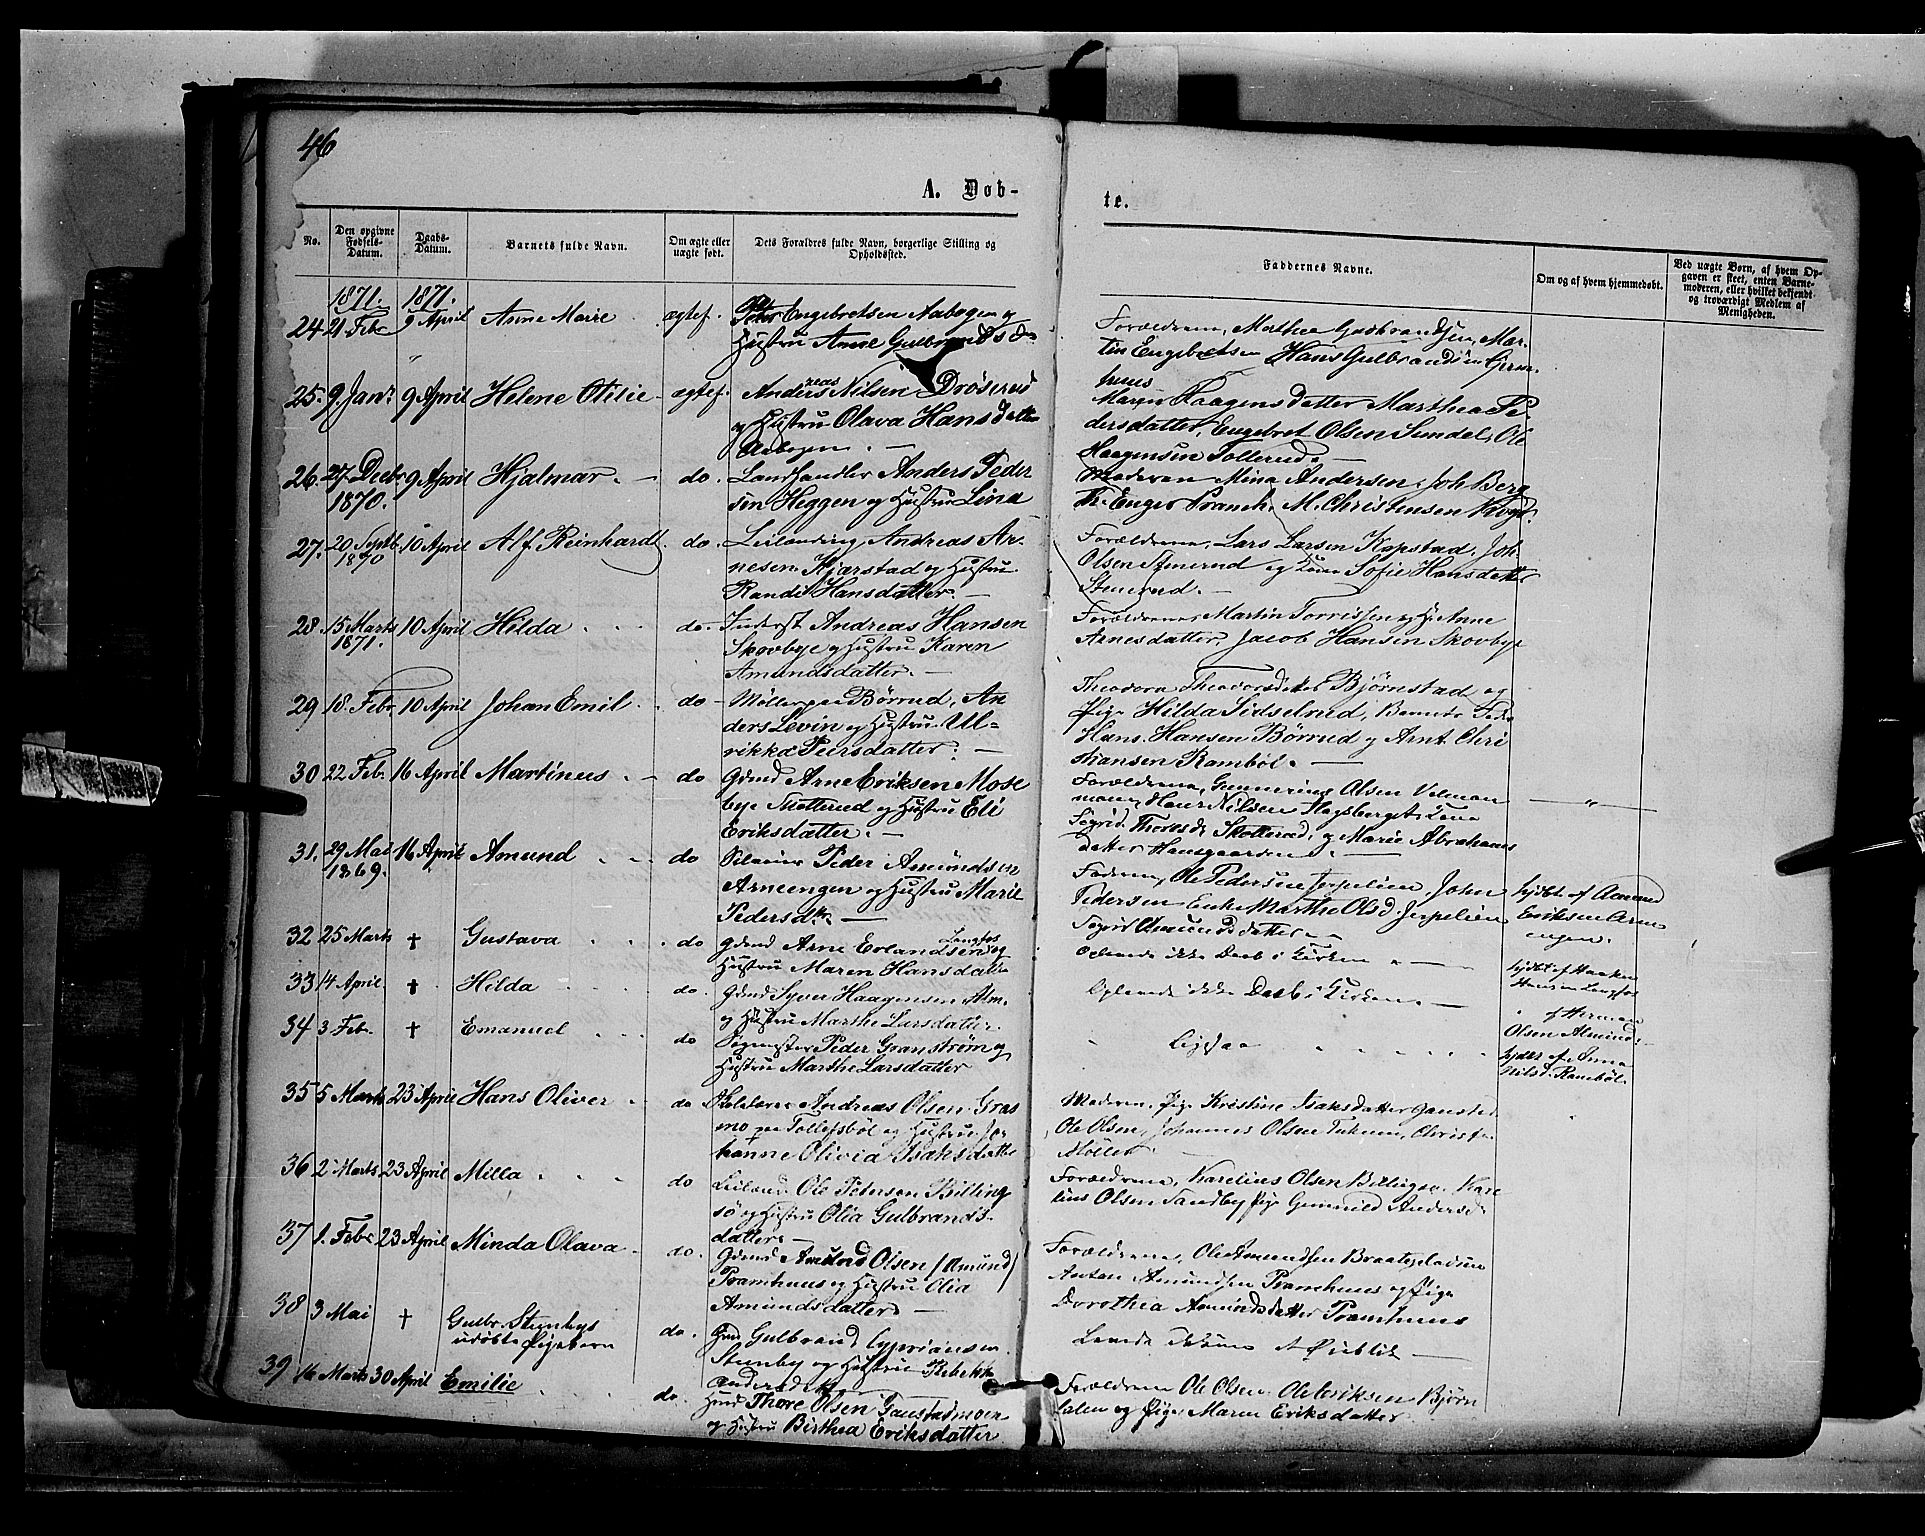 46
A. Døb-
te.
No.
Den opgivne Fødsels-Datum.
Daabs-Datum.
Barnets fulde Navn.
Om ægte eller uægte født.
Dets Forældres fulde Navn, borgerlige Stilling og Opholdssted.
Faddernes Navne.
Om og af hvem hjemmedøbt.
Ved uægte Børn, af hvem Op-
gaven er skeet, enten Barne-
moderen, eller hvilket bekjendt
og troværdigt Medlem af
Menigheden.
1871. 1871.
24 21 Febr 9 April Anne Marie ægtef.
Peter Engebretsen Aabogen og
Hustru Anne Gulbrandsd
Forældrene, Mathea Gulbrandsen, Mar-
tin Engebretsen Hans Gulbrandsen
25. 9. Janr 9 April Helene Otilie ægtef.
Andreas Nilsen Drøserud
og Hustru Olava Hansdatter
Aabogen. —
Maren Haagensdatter Marthea Pe-
dersdatter, Engebret Olsen Sundal, Ole
Haagensen Tollerud. —
26. 27. Decbr 1870. 9 April Hjalmar. — do.
Landhandler Anders Peder
sen Heggen og Hustru Lina
Moderen Mina Andersen, Joh Berg
Th. Enger M. Christensen
27. 20 Septbr 1870 10 April Alf Reinhardt. do.
Leilending Andreas Ar-
nesen Kjærstad og Hustru
Randi Hansdatter. —
Forældrene, Lars Larsen Kopstad, Joh.
Olsen Stenerud og Kone Sofie Hansdatter
Stenerud. —
28 15 Marts 1871. 10 April Hilda do.
Inderst Andreas Hansen
Skovbye og Hustru Karen
Amundsdatter. —
Forældrene, Martin Torrissen og H. Anne
Arnesdatter, Jacob Hansen Skovbye
29 18. Febr 10 April Johan Emil. do
Møller paa Børrud, An
ders Levin og Hustru Ul-
rikka Peersdatter. —
Theodora Theodorsdatter Bjørnstad og
Pige Hilda Sidselrud, Barnets Fader
Hans Hansen Børrud og Arnt Chri
stiansen Rambøl. —
30 22 Feb. 16 April Martinus. — do
Grmd Arne Eriksen Mose
bye Skotterud og Hustru Eli
Eriksdatter. —
Forældrene, Gunnerius Olsen
Hans Nilsen Kone
Sigrid Thoresd Skotterud, og Marie Abrahams
datter Hansgaarden. —
31. 29 Mai 1869. 16 April Amund do
Peder Amundsen
Arneengen og Hustru Marie
Pedersdtr —
Faderen, Ole Pedersen Jerpelien, John
Pedersen Enke Marthe Olsd. Jerpelien
Sigrid Amundsdatter
hjdbt af Amund
Eriksen Arne
engen.
32 25 Marts † Gustava do
Grmd Arne Erlandsen Langfos og
Hustru Maren Hansdatter
Oplevede ikke Daab i Kirken
hjdbt af Haaken
Hansen Langfos
33 14 April † Hilda do.
Grmd Syver Haagensen Alm.
og Hustru Marthe Larsdatter.
Oplevede ikke Daab i Kirken. —
" af Herman
Olsen Almind
34 3 Feb. † Emanuel do
Sagmester Peder Granstrøm og
Hustru Marthe Larsdatter
Ligesaa
hjdbt af Anna
Nilsd. Rambøl
35 5 Marts 23 April Hans Oliver do
Andreas Olsen Gras
mo paa Tollefsbøl og Hustru Jo-
hanne Olivia Isaksdatter
Moderen, Pige Kristine Isaksdatter
Ole Olsen, Johannes Olsen
Møller
36 2 Marts 23 April Milla do
Leilend. Ole Petersen Billing
sø og Hustru Olia Gulbrands-
datter —
Forældrene, Karelius Olsen Kare
lius Olsen Sandby Pige Gunnild Andersd
37 1. Febr 23 April Minda Olava do.
Grmd Amund Olsen (Amund)
Pramhuus og Hustru Olia
Amundsdatter —
Forældrene, Ole Amundsen
Anton Amundsen Pramhuus og Pige
Dorothea Amundsdatter Pramhuus
38 3 Mai † Gulbr. Stenbys
udøbte Pigebarn do.
Grm Gulbrand Cypriansen
Stenby og Hustru Rebekka
Andersdtr
Levede et Øieblik —
39 16 Marts 30 April Emilie do.
Thore Olsen Gaustadmoen
og Hustru Birthea Eriksdatter
Forældrene Ole Olsen Ole Eriksen Bjørn
dalen og Pige Maren Eriksdatter